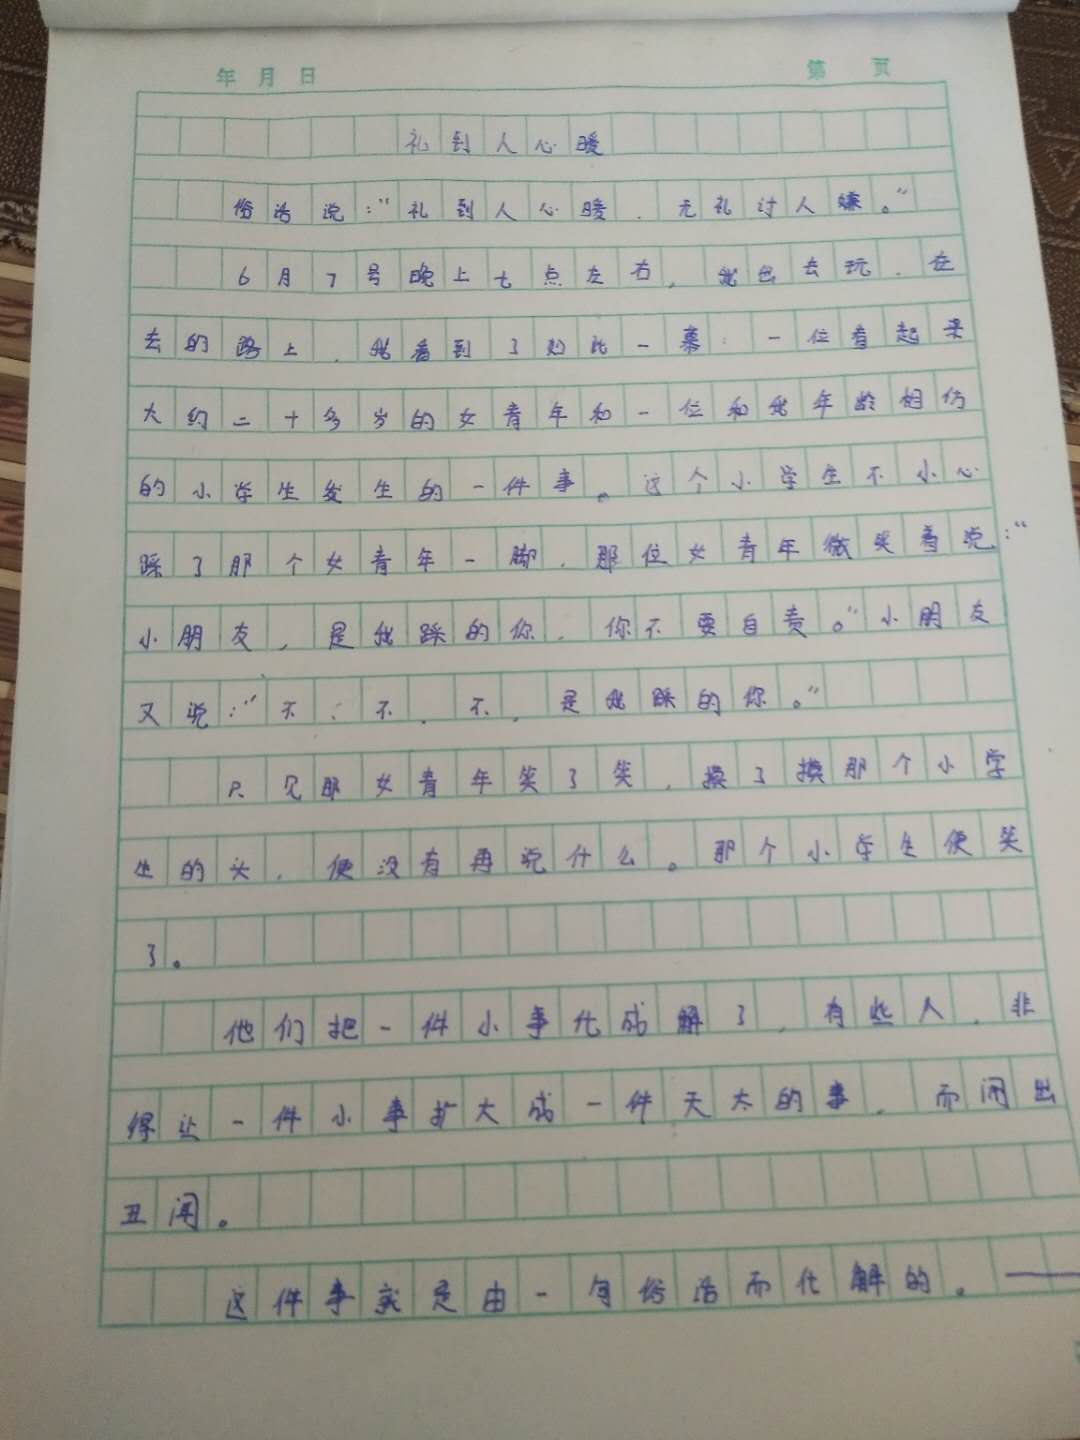 年 月 日 第 页
礼到人心暖
俗话说:“礼到人心暖,无礼讨人嫌。”
6月7号晚上七点左右,我出去玩,在
去的路上,我看到了如此一幕:一位看起来
大约二十多岁的女青年和一位和我年龄相仿
的小学生发生的一件事。这个小学生不小心
踩了那个女青年一脚,那位女青年微笑着说:“
小朋友,是我踩的你,你不要自责。”小朋友
又说:“不、不,不,是我踩的你。”
只见那女青年笑了笑,摸了摸那个小学
生的头,便没有再说什么。那个小学生便笑
了。
他们把一件小事化成解了,有些人,非
得让一件小事扩大成一件天大的事,而闹出
丑闻。
这件事就是由一句俗话而化解的。——